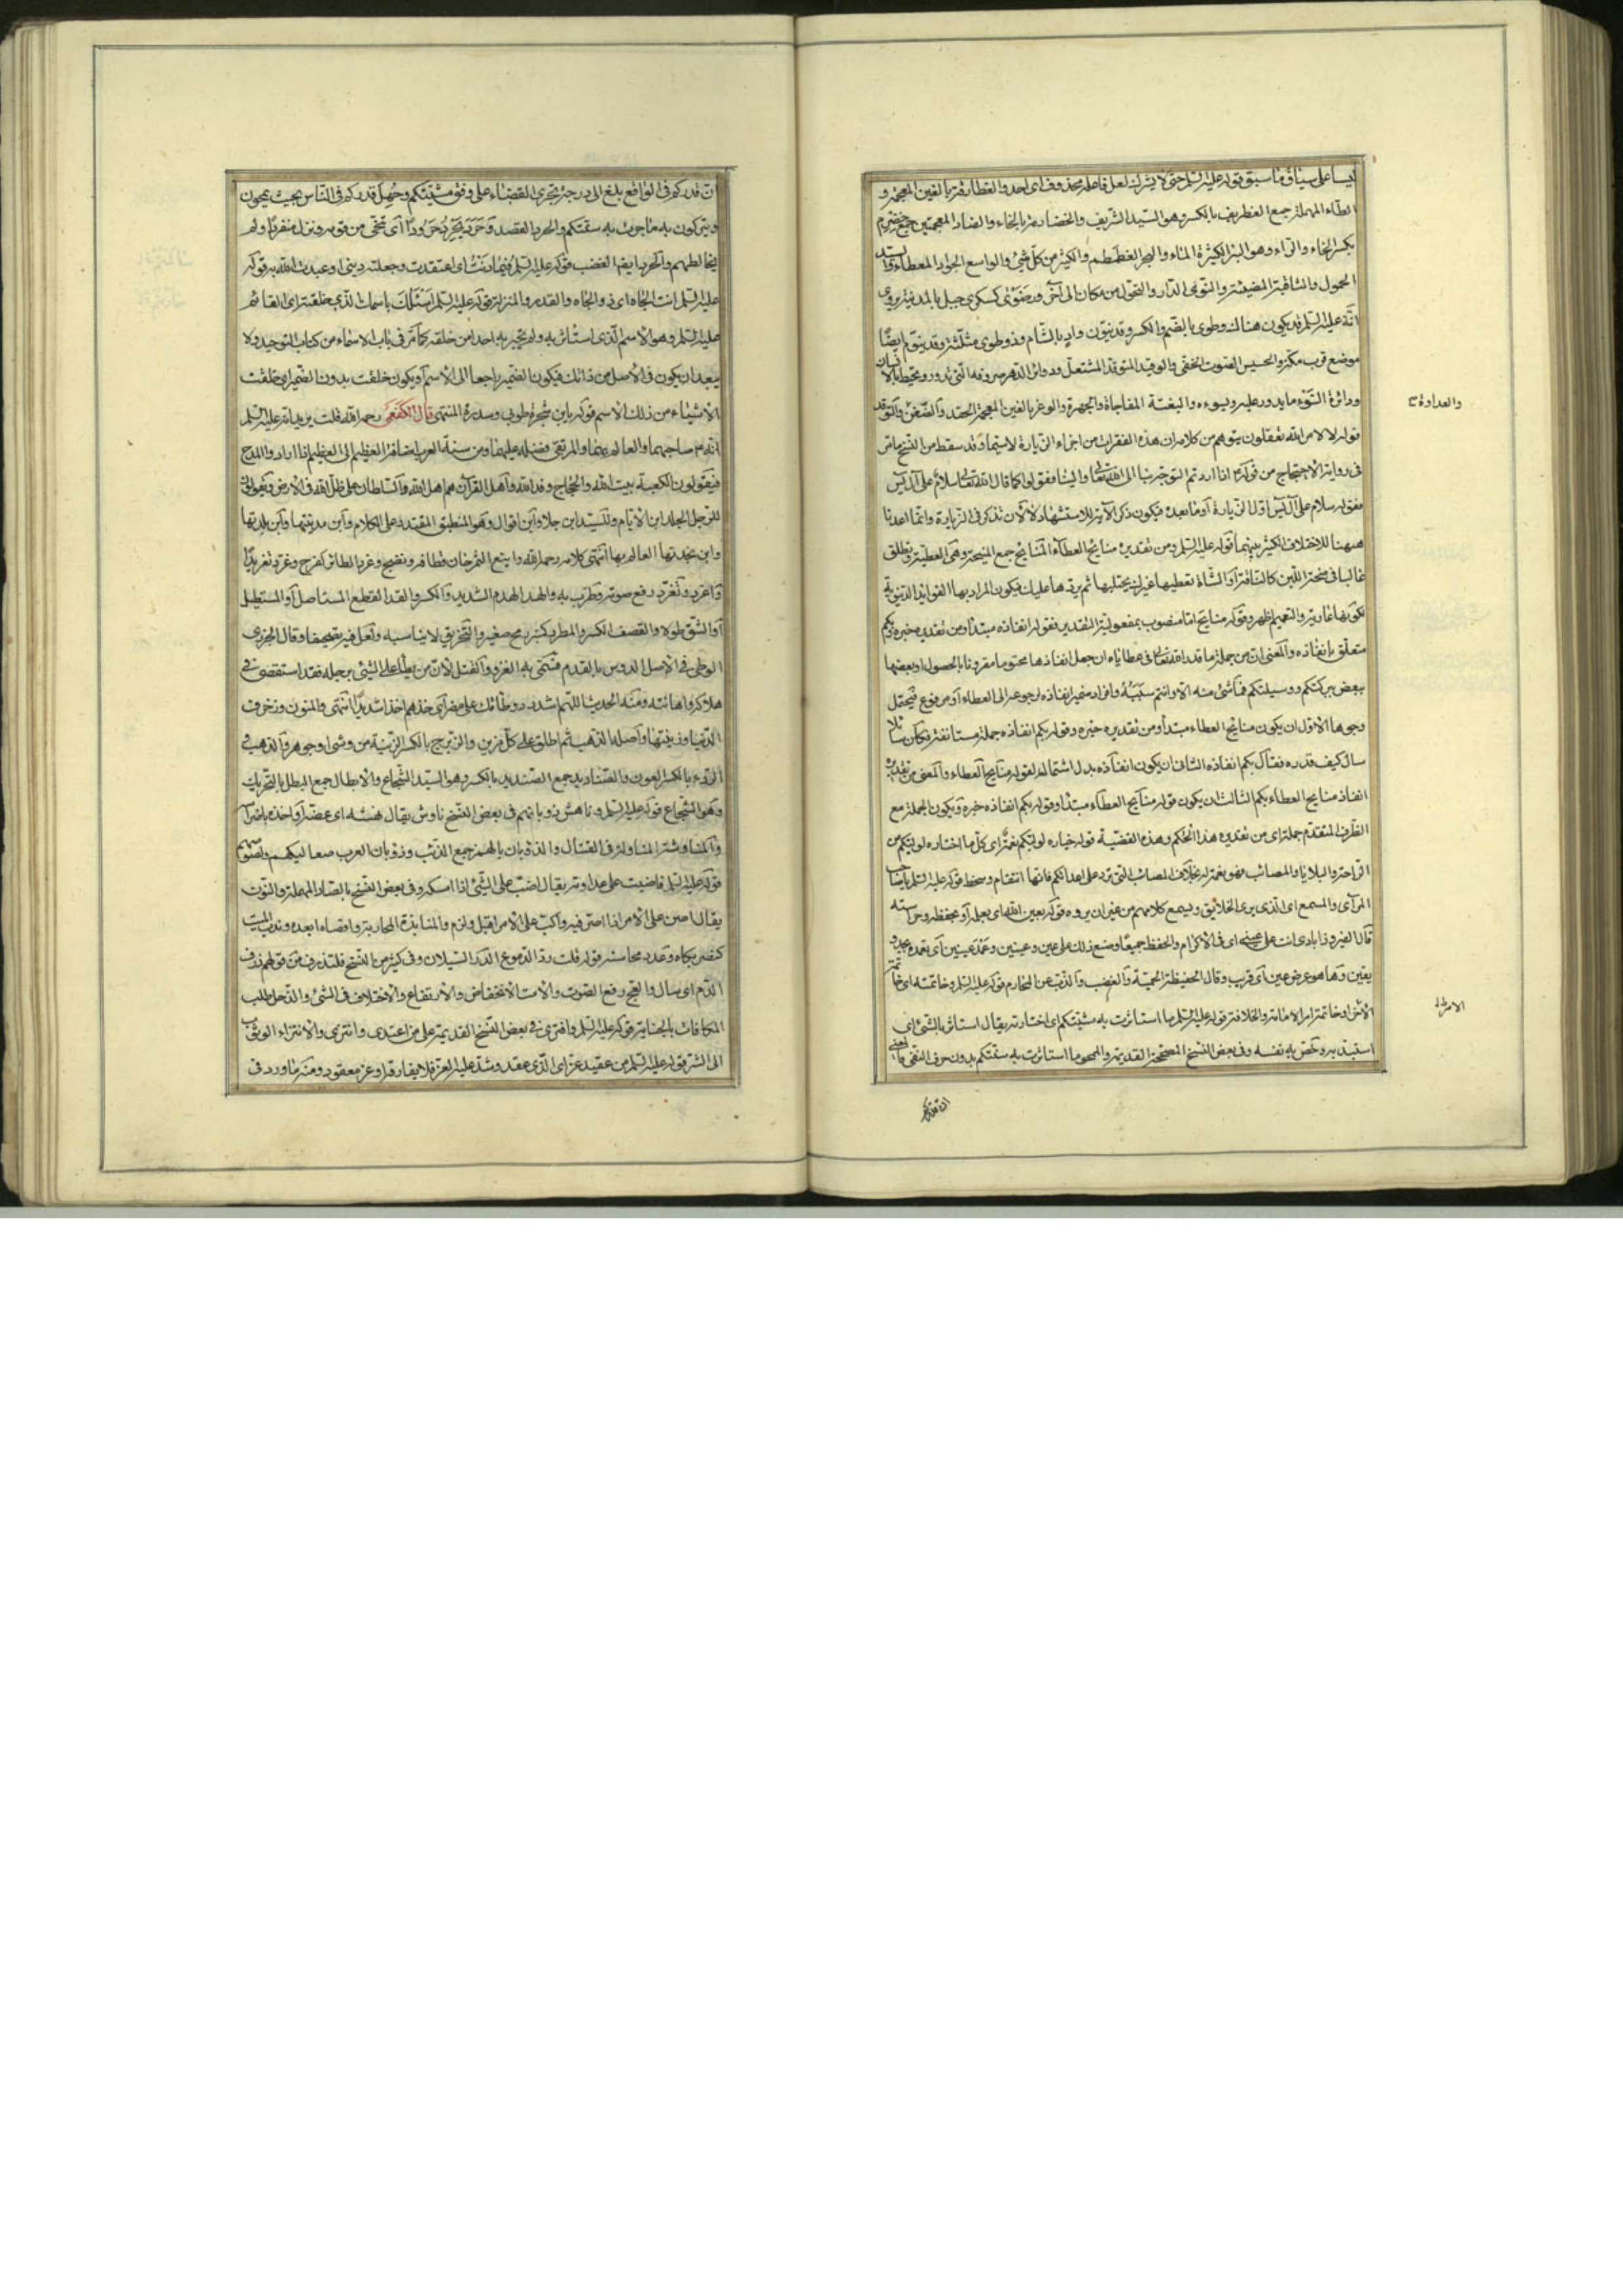 ليسا على سياق ما سبق قوله عليه السلم حتى لا يشرك لعل فاعله محذوف اى احد والغطارفة بالغين المعجمة و
الطاء المهملة جمع الغطريف بالكسر وهو السيد الشريف والخضارمة بالخاء والضاد المعجمتين جمع خضرم
بكسر الخاء والراء وهو البئر الكثيرة الماء والبحر الغطمطم والكثير من كل شئ والواسع الجواد المعطاء والسيد
الحمول والثاقبة المضيئة والنوى الدار والتحول من مكان الى آخر ورضوى كسكرى جبل بالمدينة يروى
انه عليه السلم قد يكون هناك وطوى بالضم والكسر وقد ينون واد بالشام وذو طوى مثلثة وقد ينون ايضا
موضع قرب مكة والحسيس الصوت الخفى والوقيد المتوقد المشتعل ودوائر الدهر صروفه التى تدور وتحيط بالانسان
ودائرة السوء ما يدور عليه ويسوءه والبغتة المفاجاة والجهرة والوغر بالغين المعجمة الحقد والضغن والتوقد
والعداوة
قوله لا لامر الله تعقلون يتوهم من كلامه ان هذه الفقرات من اجزاء الزيارة لا سيما وقد سقط من النسخ ما مر
فى رواية الاحتجاج من قوله اذا اردتم التوجه بنا الى الله تعالى والينا فقولوا كما قال الله تعالى سلام على آل يس
فقوله سلام على آل يس اول الزيارة او ما بعده فيكون ذكر الآية للاستشهاد لا لان تذكر فى الزيارة وانما اعدنا
ههنا للاختلاف الكثير بينهما قوله عليه السلم ومن تقديره منايح العطاء المنايح جمع المنيحة وهى العطية وتطلق
غالبا فى منحة اللبن كالناقة او الشاة تعطيها غيرك يحتلبها ثم يردها عليك فيكون المراد بها الفوائد الدنيوية
لكونها عارية والتعميم اظهر وقوله منايح اما منصوب بمفعولية التقدير فقوله انفاذه مبتدأ ومن تقديره خبره وبكم
متعلق بانفاذه والمعنى ان من جملة ما قدر الله تعالى فى عطاياه ان جعل انفاذها محتوما مقرونا بالحصول او بعضها
ببعض ببركتكم ووسيلتكم فما شئ منه الا وانتم سببه وافراد ضمير انفاذه لرجوعه الى العطاء او مرفوع فيحتمل
وجوها الاول ان يكون منايح العطاء مبتدأ ومن تقديره خبره وقوله بكم انفاذه جملة مستانفة فكأن سائلا
سال كيف قدره فقال بكم انفاذه الثانى ان يكون انفاذه بدل اشتمال لقوله منايح العطاء والمعنى من تقديره
انفاذ منايح العطاء بكم الثالث ان يكون قوله منايح العطاء مبتدأ وقوله بكم انفاذه خبره ويكون الجملة مع
الظرف المتقدم جملة اى من تقديره هذا الحكم وهذه القضية قوله خياره لوليكم نعمة اى كل ما اختاره لوليكم من
الراحة والبلايا والمصائب فهو نعمة له بخلاف المصائب التى ترد على اعدائكم فانها انتقام وسخط قوله عليه السلم يا صاحب
المرأى والمسمع اى الذى يرى الخلايق ويسمع كلامهم من غير ان يروه قوله بعين الله اى بعلمه او بحفظه وحراسته
قال الفيروزابادى انت على عينى اى فى الاكرام والحفظ جميعا وصنع ذلك على عين وعينين وعمد عينين اى تعمده بجد و
يقين وها هو عرض عين اى قريب وقال الحفيظة الحمية والغضب والذب عن المحارم قوله عليه السلم وخاتمته اى خاتمة
الامر
الاخر او خاتمة امر الامامة والخلافة قوله عليه السلم ما استاثرت به مشيتكم اى اختارته يقال استاثر بالشئ اى
استبد به وخص به نفسه وفى بعض النسخ المصححة القديمة والمحو ما استاثرت به سنتكم بدون حرف النفى والمعنى
ان قدركم
ان قدركم فى الواقع بلغ الى درجة تجرى القضاء على وفق مشيتكم وجهل قدركم فى الناس بحيث يمحون
ويتركون به ما جرت به سنتكم والحرد القصد وحرد يحرد حرودا اى تنحى من قومه ونزل منفردا ولم
يخالطهم والحرد ايضا الغضب قوله عليه السلم فيما دنت اى اعتقدت وجعلته دينى او عبدت الله به قوله
عليه السلم انت الجاه اى ذو الجاه والقدر والمنزلة قوله عليه السلم اسئلك باسمك الذى خلقته اى القائم
عليه السلم وهو الاسم الذى استاثر به ولم يخبر به احدا من خلقه كما مر فى باب الاسماء من كتاب التوحيد ولا
يبعد ان يكون فى الاصل من ذلك فيكون الضمير راجعا الى الاسم او يكون خلقت بدون الضمير اى خلقت
الاشياء من ذلك الاسم قوله يا بن شجرة طوبى وسدرة المنتهى قال الكفعمى رحمه الله قلت يريد انه عليه السلم
انه صاحبهما والعالم عنهما والمرتقى فضله عليهما ومن سنة العرب اضافة العظيم الى العظيم اذا ارادوا المدح
فيقولون الكعبة بيت الله والحجاج وفد الله واهل القرآن هم اهل الله والسلطان على ظل الله فى الارض ويقولون
للرجل الجلد ابن الايام وللسيد ابن جلا وابن اقوال وهو المنطيق المقتدر على الكلام وابن مدينتها وابن بلدتها
وابن بجدتها العالم بها انتهى كلامه رحمه الله واينع الثمر حان قطافه ونضج وغرد الطائر كفرح وغرد تغريدا
واغرد وتغرد رفع صوته وطرب به والهد الهدم الشديد والكسر والقد القطع المستاصل او المستطيل
او الشق طولا والقصف الكسر والمطرد كمنبر رمح صغير والتخريق لا يناسبه ولعل فيه تصحيفا وقال الجزرى
الوطى فى الاصل الدوس بالقدم فسمى به الغزو والقتل لان من يطأ على الشئ برجله فقد استقصى فى
هلاكه واهانته ومنه الحديث اللهم اشدد وطأتك على مضر اى خذهم اخذا شديدا انتهى والمنون وزخرف
الدنيا وزينتها واصله الذهب ثم اطلق على كل مزين والزبرج بالكسر الزينة من وشى او جوهر والذهب فى
الردء بالكسر العون والصناديد جمع الصنديد بالكسر وهو السيد الشجاع والابطال جمع البطل بالتحريك
وهو الشجاع قوله عليه السلم وناهش ذؤبانهم فى بعض النسخ ناوش يقال نهشه اى عضه او اخذه باضراسه
والمناوشة المناولة فى القتال والذؤبان بالهمز جمع الذئب وذؤبان العرب صعاليكهم ولصوصهم
قوله عليه السلم فاضبت على عداوته يقال اضب على الشئ اذا امسكه وفى بعض النسخ بالصاد المهملة والنون
يقال اصن على الامر اذا اصر فيه واكب على الامر اقبل ولزم والمنابذة المحاربة واقصاه ابعده وندب الميت
كنصر بكاه وعدد محاسنه قوله قلت ردا الدموع الدر السيلان وفى كثير من النسخ فلتذرف من قولهم ذرف
الدم اى سال والعج رفع الصوت والامت الانخفاض والارتفاع والاختلاف فى الشئ والذحل طلب
المكافات بالجناية قوله عليه السلم وافترى فى بعض النسخ القديمة على من اعتدى وانتزى والانتزاء الوثوب
الى الشر قوله عليه السلم من عقيد عز اى الذى عقد وشد عليه العز فلا يفارقه او عز معقود ومنه ما ورد فى